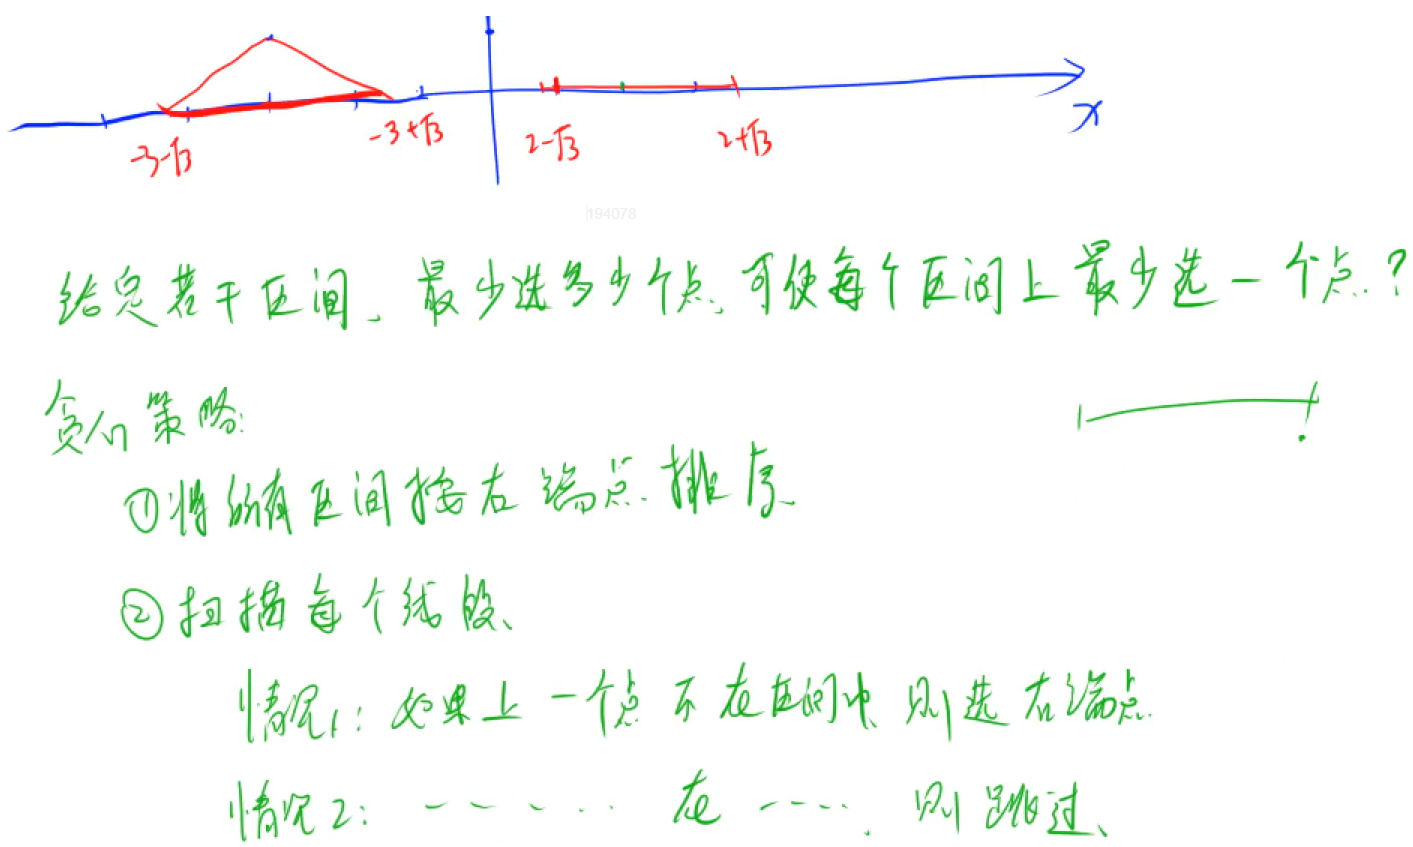 -3-√3 -3+√3 2-√3 2+√3 x
194078
给定若干区间、最少选多少个点、可使每个区间上最少选一个点？
贪心策略:
①将所有区间按右端点排序、
②扫描每个线段、
情况1: 如果上一个点不在区间中、则选右端点.
情况2: ------ 在 ----. 则跳过、